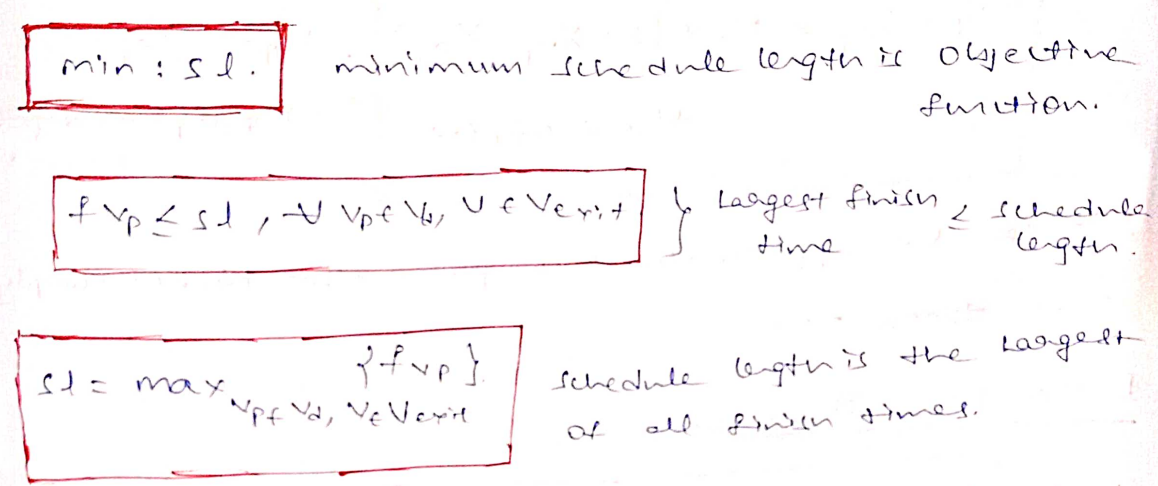 min : sl. minimum schedule length is objective
function.
f vp ≤ sl, ∀ vp ∈ Vd, v ∈ Vexit } Largest finish ≤ schedule
time length.
sl = max vp ∈ Vd, v ∈ Vexit {f vp} schedule length is the Largest
of all finish times.